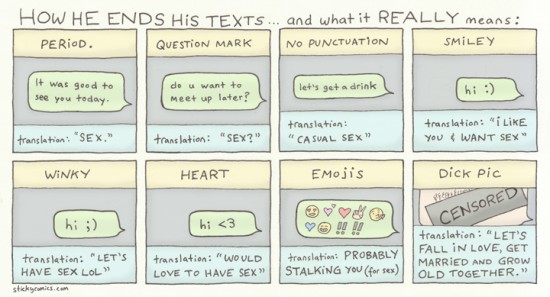 HOW HE ENDS HIS TEXTS... and what it REALLY means:
PERIOD.
It was good to
see you today.
translation: "SEX."
QUESTION MARK
do u want to
meet up later?
translation: "SEX?"
NO PUNCTUATION
let's get a drink
translation:
"CASUAL SEX"
SMILEY
hi :)
translation: "i LIKE
YOU & WANT SEX"
WINKY
hi ;)
translation: "LET'S
HAVE SEX LOL"
HEART
hi <3
translation: "WOULD
LOVE TO HAVE SEX"
EMOJIS
!! !!
translation: PROBABLY
STALKING YOU (for sex)
DICK PIC
CENSORED
translation: "LET'S
FALL IN LOVE, GET
MARRIED AND GROW
OLD TOGETHER."
stickycomics.com